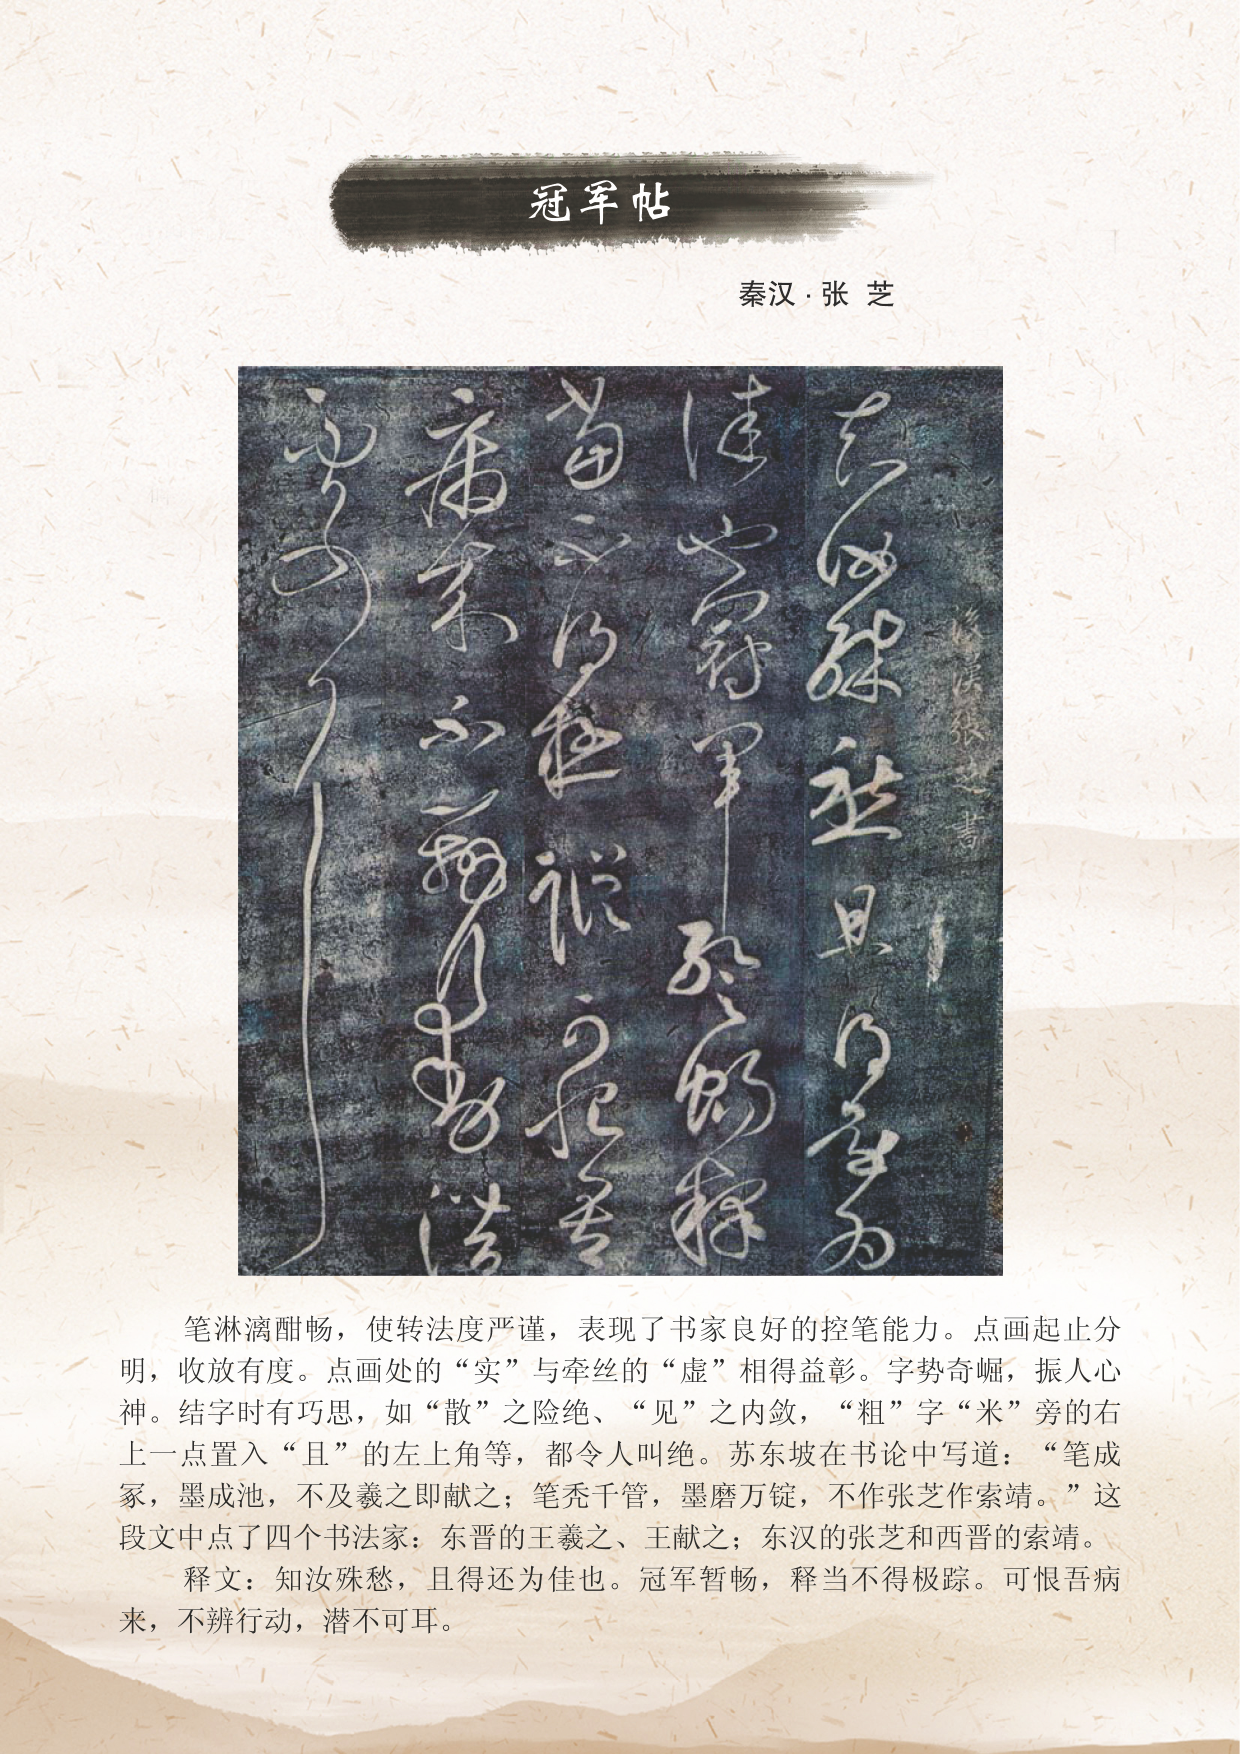 冠军帖
秦汉·张 芝
後漢張芝書
知汝殊愁且得還為
佳也冠軍暫暢釋
當不得極蹤可恨吾
病來不辨行動潛
不可耳
笔淋漓酣畅，使转法度严谨，表现了书家良好的控笔能力。点画起止分
明，收放有度。点画处的“实”与牵丝的“虚”相得益彰。字势奇崛，振人心
神。结字时有巧思，如“散”之险绝、“见”之内敛，“粗”字“米”旁的右
上一点置入“且”的左上角等，都令人叫绝。苏东坡在书论中写道：“笔成
冢，墨成池，不及羲之即献之；笔秃千管，墨磨万锭，不作张芝作索靖。”这
段文中点了四个书法家：东晋的王羲之、王献之；东汉的张芝和西晋的索靖。
释文：知汝殊愁，且得还为佳也。冠军暂畅，释当不得极踪。可恨吾病
来，不辨行动，潜不可耳。